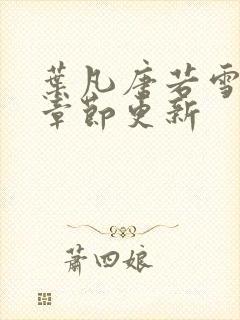 葉凡唐若雪
章節更新
蕭四娘